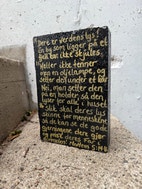 Dere er verdens lys!
En by som ligger på et
fjell kan ikke skjules,
Heller ikke tenner
man en oljelampe, og
setter den under et kar
Nei, man setter den
på en holder, så den
lyser for alle i huset
Slik skal deres lys
skinne for menneskene
så de kan se de gode
gjerningene dere gjør
og prise deres Far i
himmelen" Matteus 5:14-16